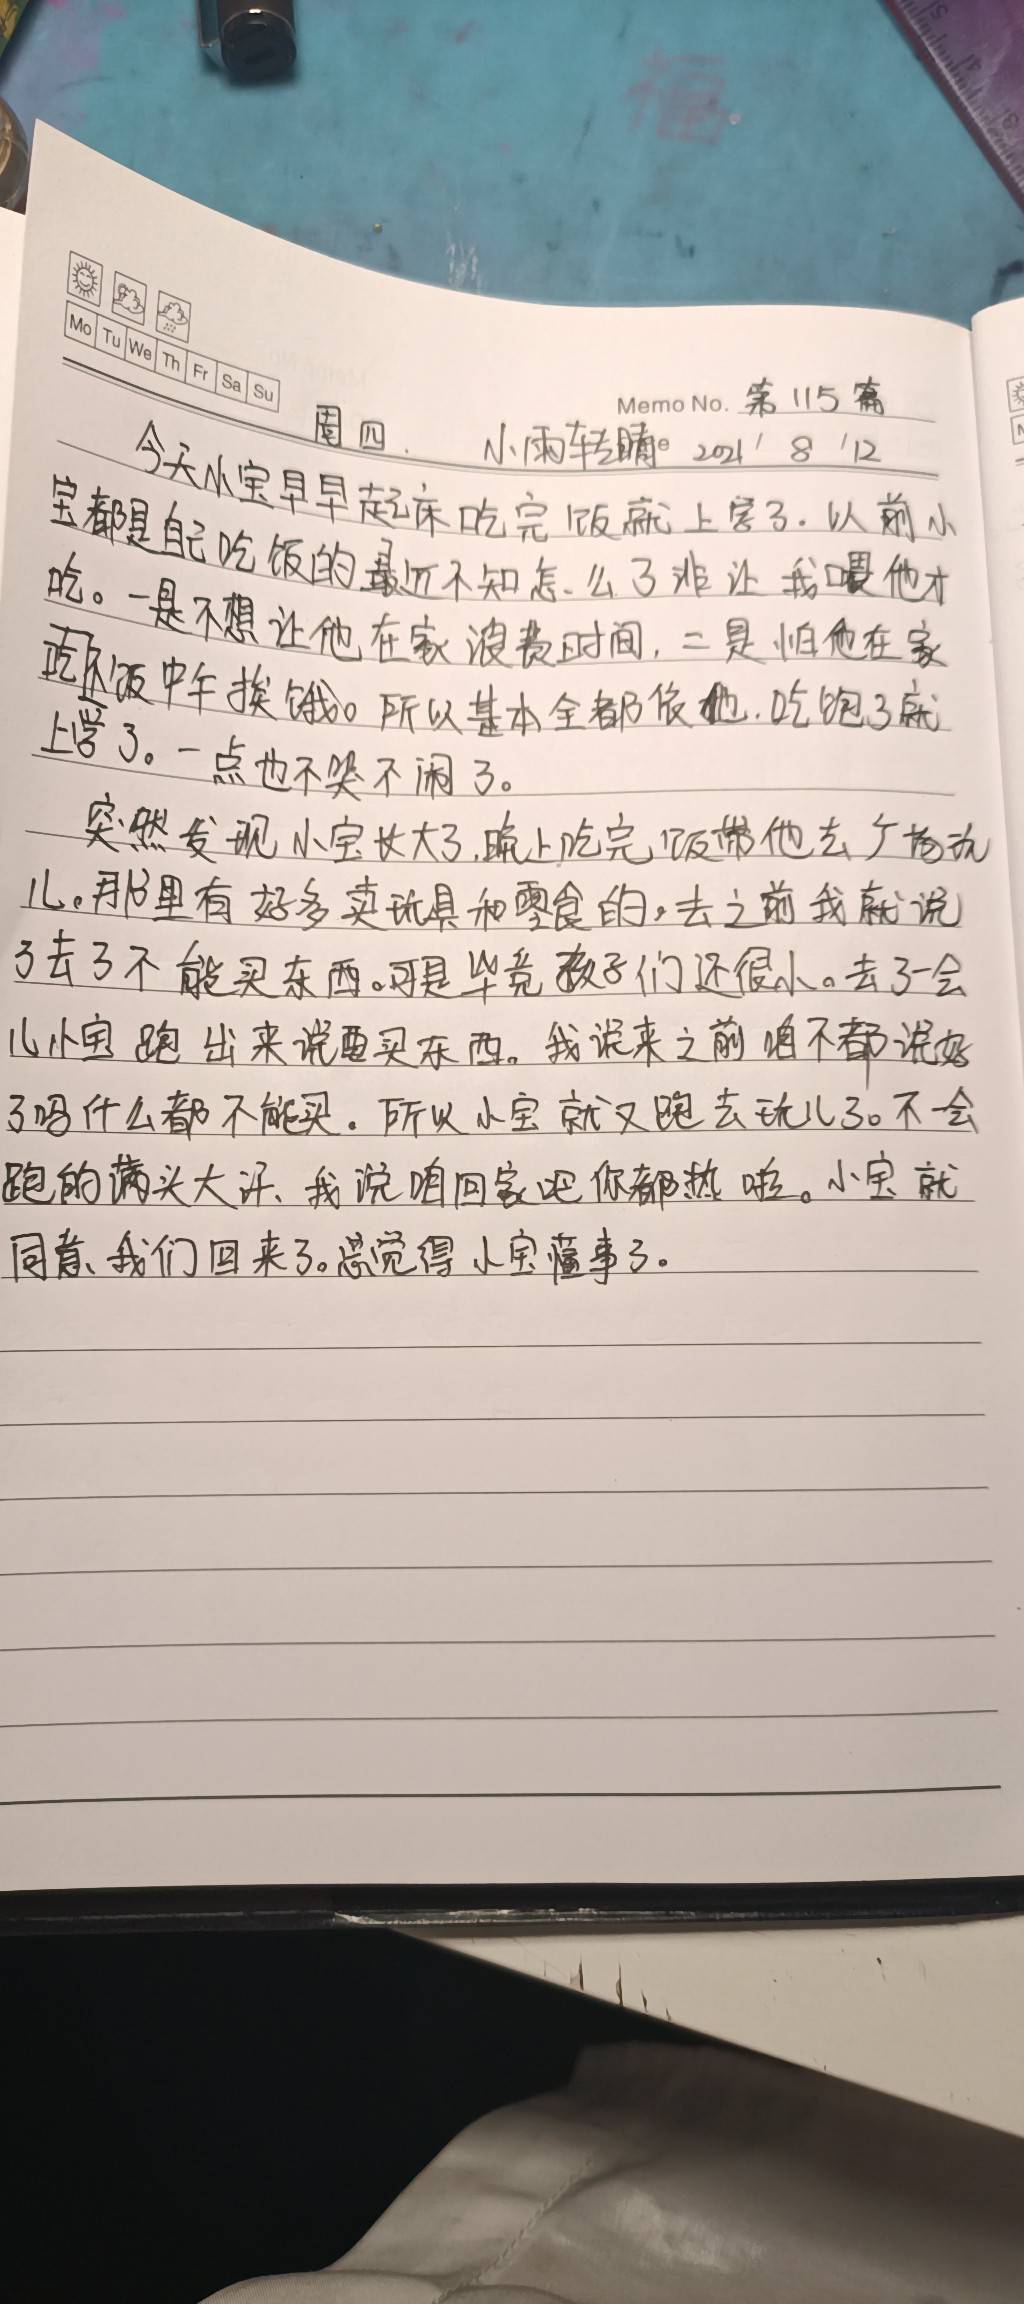 Mo Tu We Th Fr Sa Su
Memo No. 第115篇
周四. 小雨转晴 2021 / 8 / 12
今天小宝早早起床吃完饭就上学了.以前小
宝都是自己吃饭的最近不知怎么了非让我喂他才
吃。一是不想让他在家浪费时间,二是怕他在家
吃不饭中午挨饿。所以基本全都依他.吃饱了就
上学了。一点也不哭不闹了。
突然发现小宝长大了.晚上吃完饭带他去广场玩
儿。那里有好多卖玩具和零食的,去之前我就说
了去了不能买东西。可是毕竟孩子们还很小。去了一会
儿小宝跑出来说要买东西。我说来之前咱不都说好
了吗什么都不能买.所以小宝就又跑去玩儿了。不一会
跑的满头大汗、我说咱回家吧你都热啦。小宝就
同意、我们回来了。总觉得小宝懂事了。
福